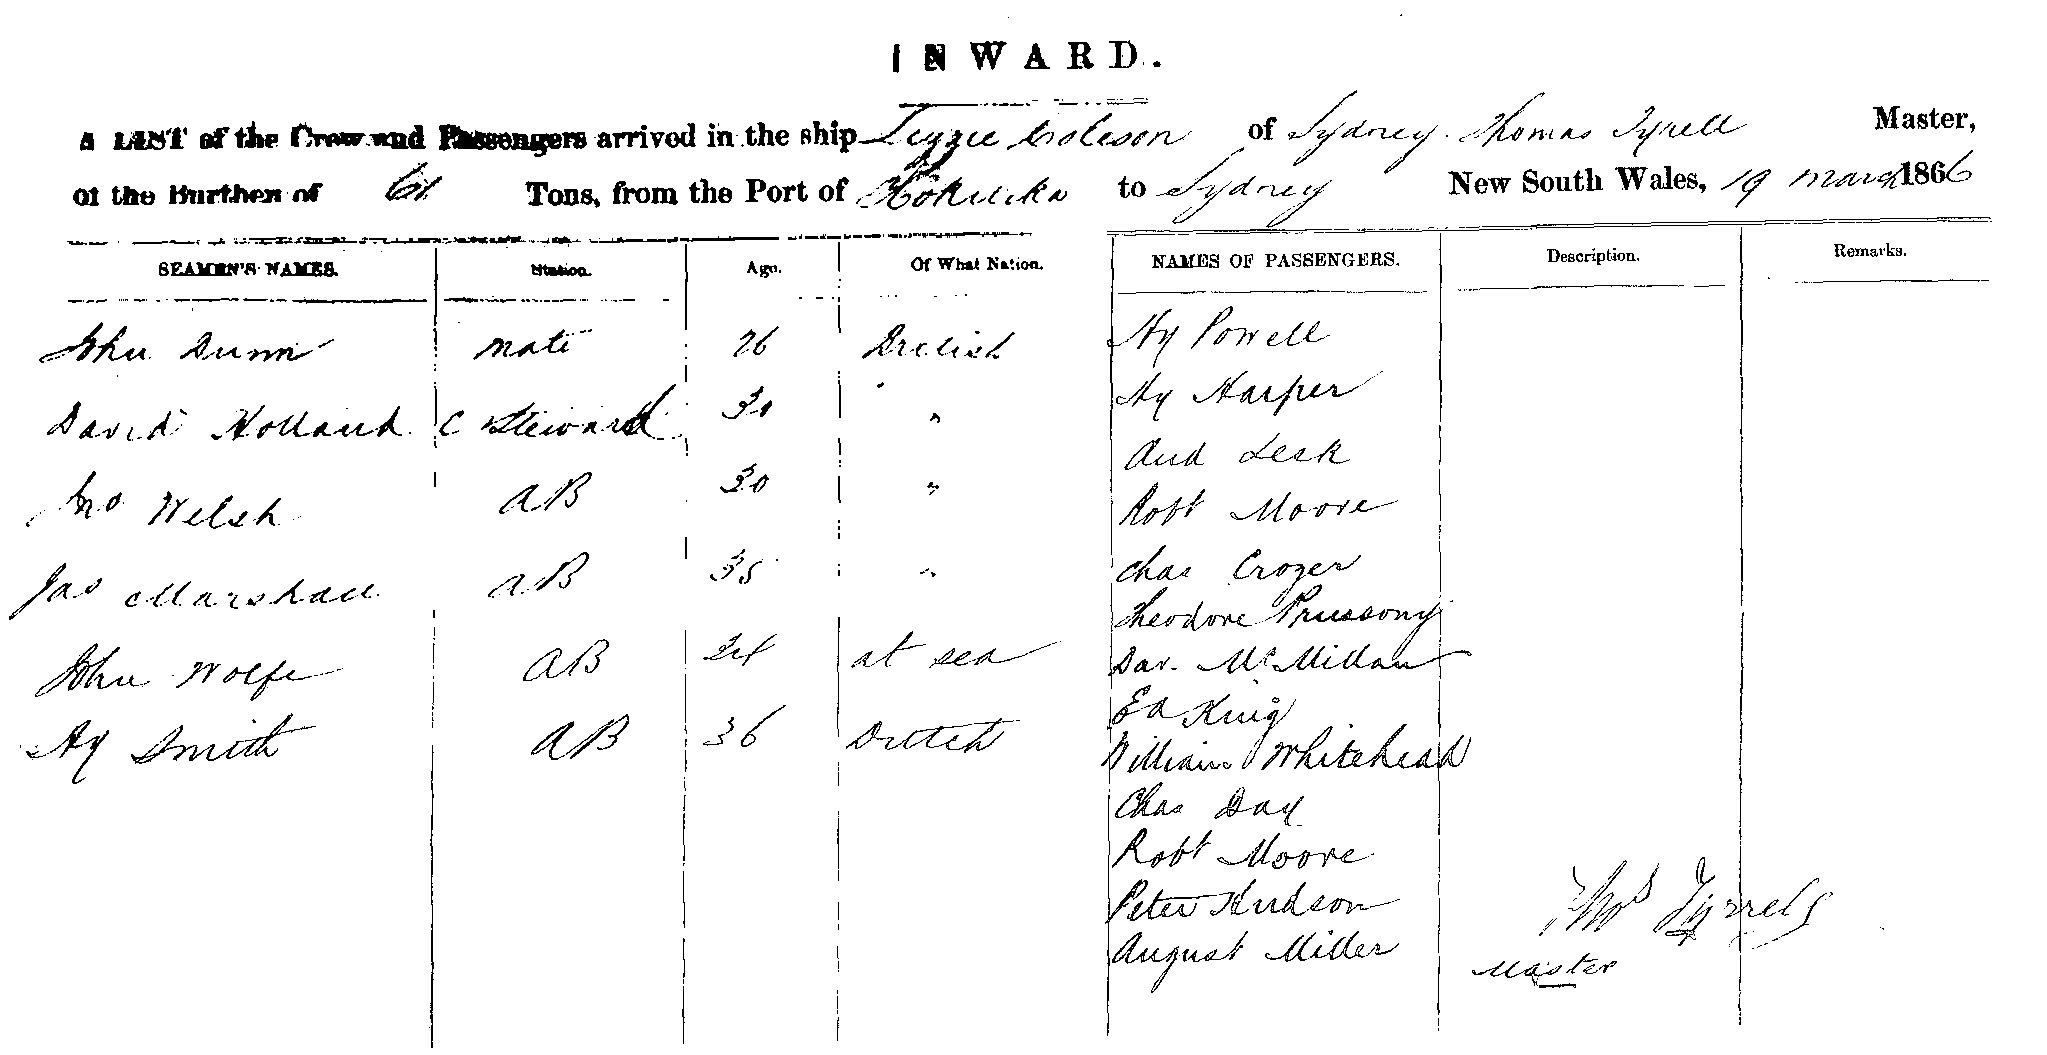 INWARD.
A LIST of the Crew and Passengers arrived in the ship Lizzie Coleson of Sydney. Thomas Tyrell Master,
Of the Burthen of Tons, from the Port of Hokitika to Sydney New South Wales, 19 March 1866
SEAMEN'S NAMES. Station. Age. Of What Nation. NAMES OF PASSENGERS. Description. Remarks.
John Dunn mate 26 British
David Holland C Steward 30 "
Jno Welsh AB 30 "
Jas Marshall AB 35 "
John Wolfe AB 24 at sea
Hy Smith AB 36 Dutch
Hy Powell
Hy Harper
And Lesk
Robt Moore
Chas Crozer
Theodore Prussony
Dav. McMillan
Ed King
William Whitehead
Chas Day
Robt Moore
Peter Hudson
August Miller
Thos Tyrrell
Master